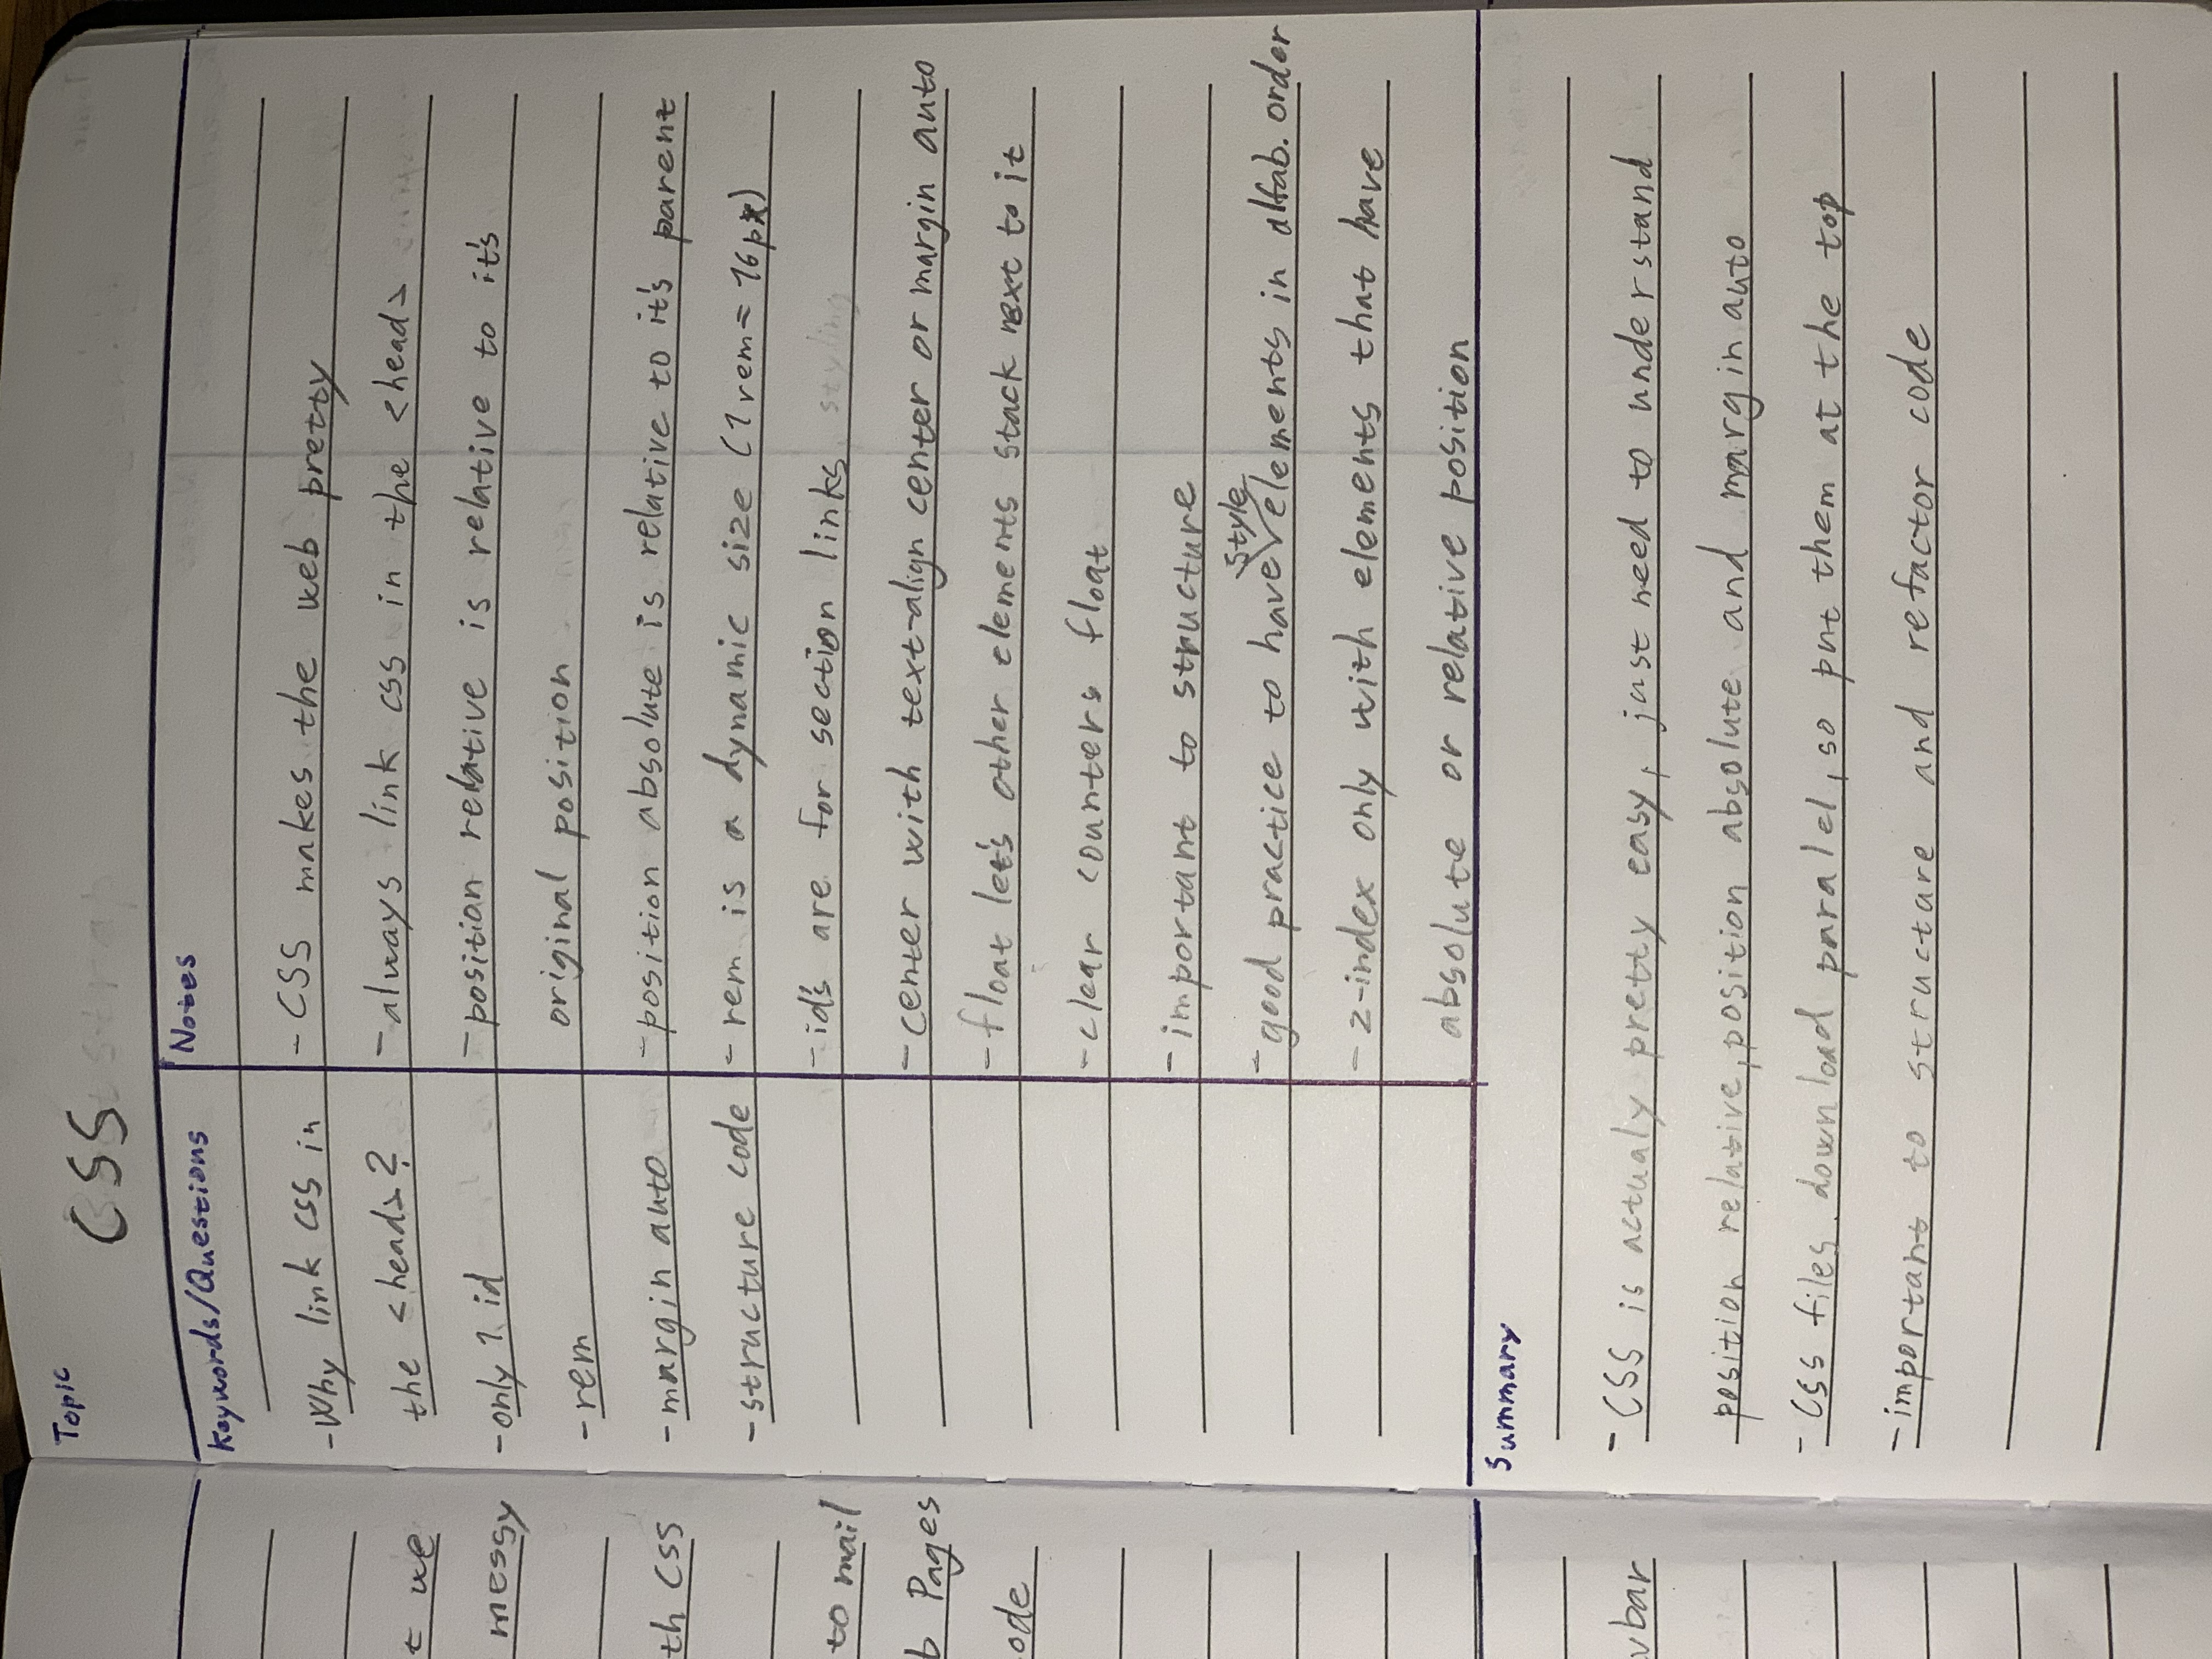 Topic
CSS
Keywords/Questions
-Why link css in
the <head>?
-only 1 id
-rem
-margin auto
-structure code
Notes
-CSS makes the web pretty
-always link css in the <head>
-position relative is relative to it's
original position
-position absolute is relative to it's parent
-rem is a dynamic size (1rem=16px)
-id's are for section links, styling
-center with text-align center or margin auto
-float let's other elements stack next to it
-clear counters float
-important to structure
style
-good practice to have elements in alfab. order
-z-index only with elements that have
absolute or relative position
Summary
-CSS is actualy pretty easy, just need to understand
position relative, position absolute and margin auto
-CSS files download paralel, so put them at the top
-important to structure and refactor code
t we
messy
th CSS
to mail
b Pages
ode
vbar